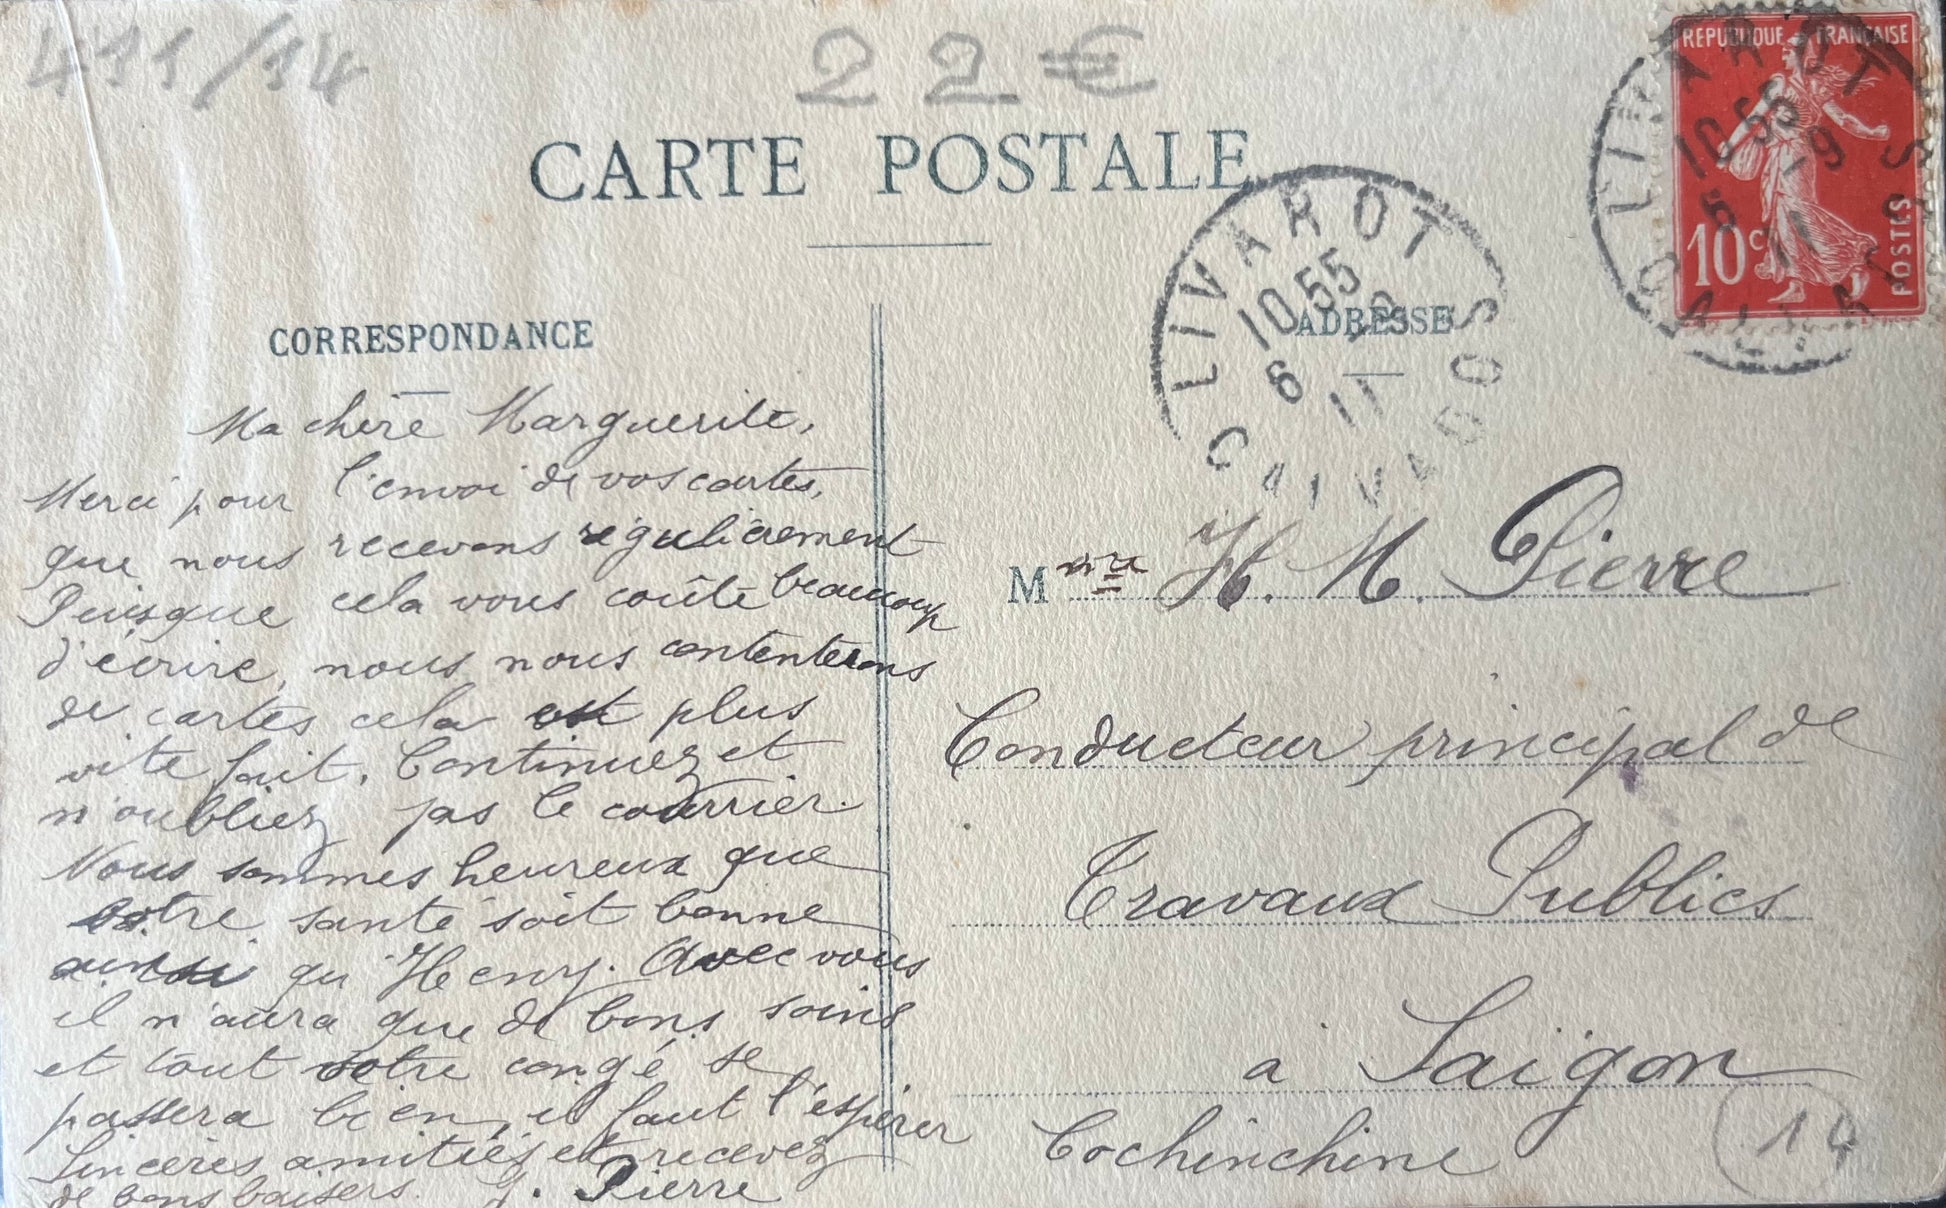 411/14
22€
CARTE POSTALE
REPUBLIQUE FRANÇAISE
10c
POSTES
LIVAROT
CALVADOS
10 55
6 - 9
11
LIVAROT
CALVADOS
10 55
6 - 9
11
CORRESPONDANCE
Ma chère Marguerite,
Merci pour l'envoi de vos cartes,
que nous recevons régulièrement
Puisque cela vous coûte beaucoup
d'écrire, nous nous contenterons
de cartes cela est plus
vite fait. Continuez et
n'oubliez pas le courrier.
Nous sommes heureux que
votre santé soit bonne
ainsi qu'Henry. Avec vous
il n'aura que de bons soins
et tout votre congé se
passera bien, il faut l'espérer
Sincères amitiés et recevez
de bons baisers. J. Pierre
ADRESSE
Mme H. M. Pierre
Conducteur principal de
Travaux Publics
à Saïgon
Cochinchine
14